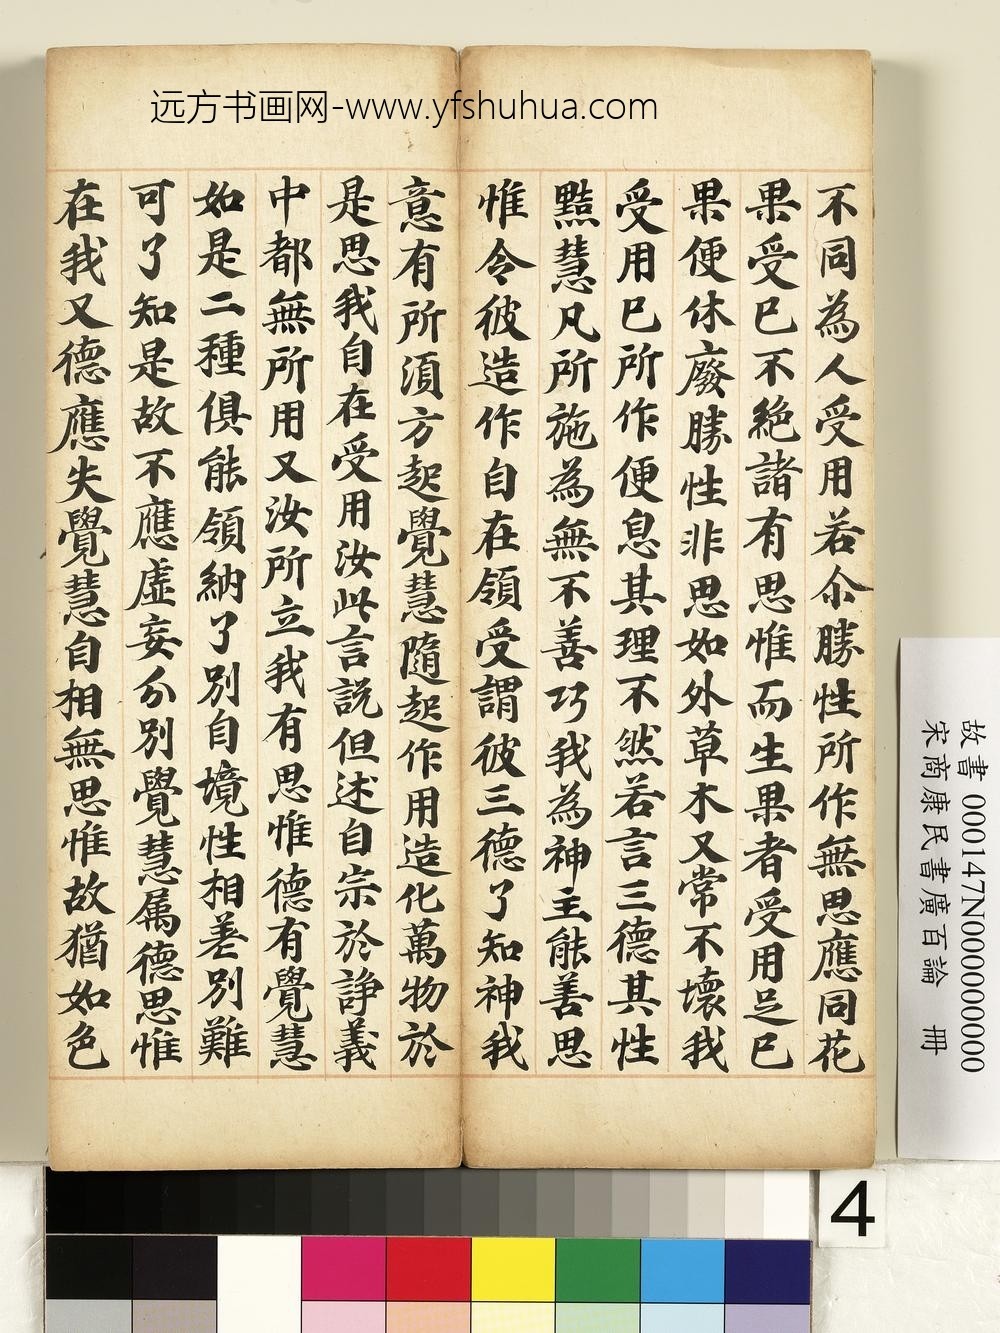 远方书画网-www.yfshuhua.com
不同為人受用若尒勝性所作無思應同花
果受已不絕諸有思惟而生果者受用足已
果便休廢勝性非思如外草木又常不壞我
受用已所作便息其理不然若言三德其性
黠慧凡所施為無不善巧我為神主能善思
惟令彼造作自在領受謂彼三德了知神我
意有所須方起覺慧隨起作用造化萬物於
是思我自在受用汝此言說但述自宗於諍義
中都無所用又汝所立我有思惟德有覺慧
如是二種俱能領納了別自境性相差別難
可了知是故不應虛妄分別覺慧屬德思惟
在我又德應失覺慧自相無思惟故猶如色
故書 000147N000000000
宋商康民書廣百論 冊
4